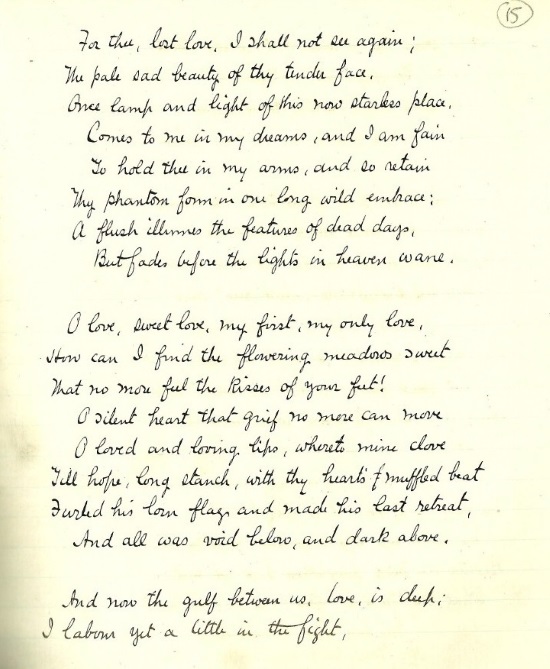 15
For thee, lost love, I shall not see again;
The pale sad beauty of thy tender face,
Once lamp and light of this now starless place,
Comes to me in my dreams, and I am fain
To hold thee in my arms, and so retain
Thy phantom form in one long wild embrace;
A flush illumes the features of dead days,
But fades before the lights in heaven wane.
O love, sweet love, my first, my only love,
How can I find the flowering meadows sweet
That no more feel the kisses of your feet!
O silent heart that grief no more can move
O loved and loving lips, whereto mine clove
Till hope, long stanch, with thy heart's muffled beat
Furled his lorn flags and made his last retreat,
And all was void below, and dark above.
And now the gulf between us, love, is deep;
I labour yet a little in the fight,